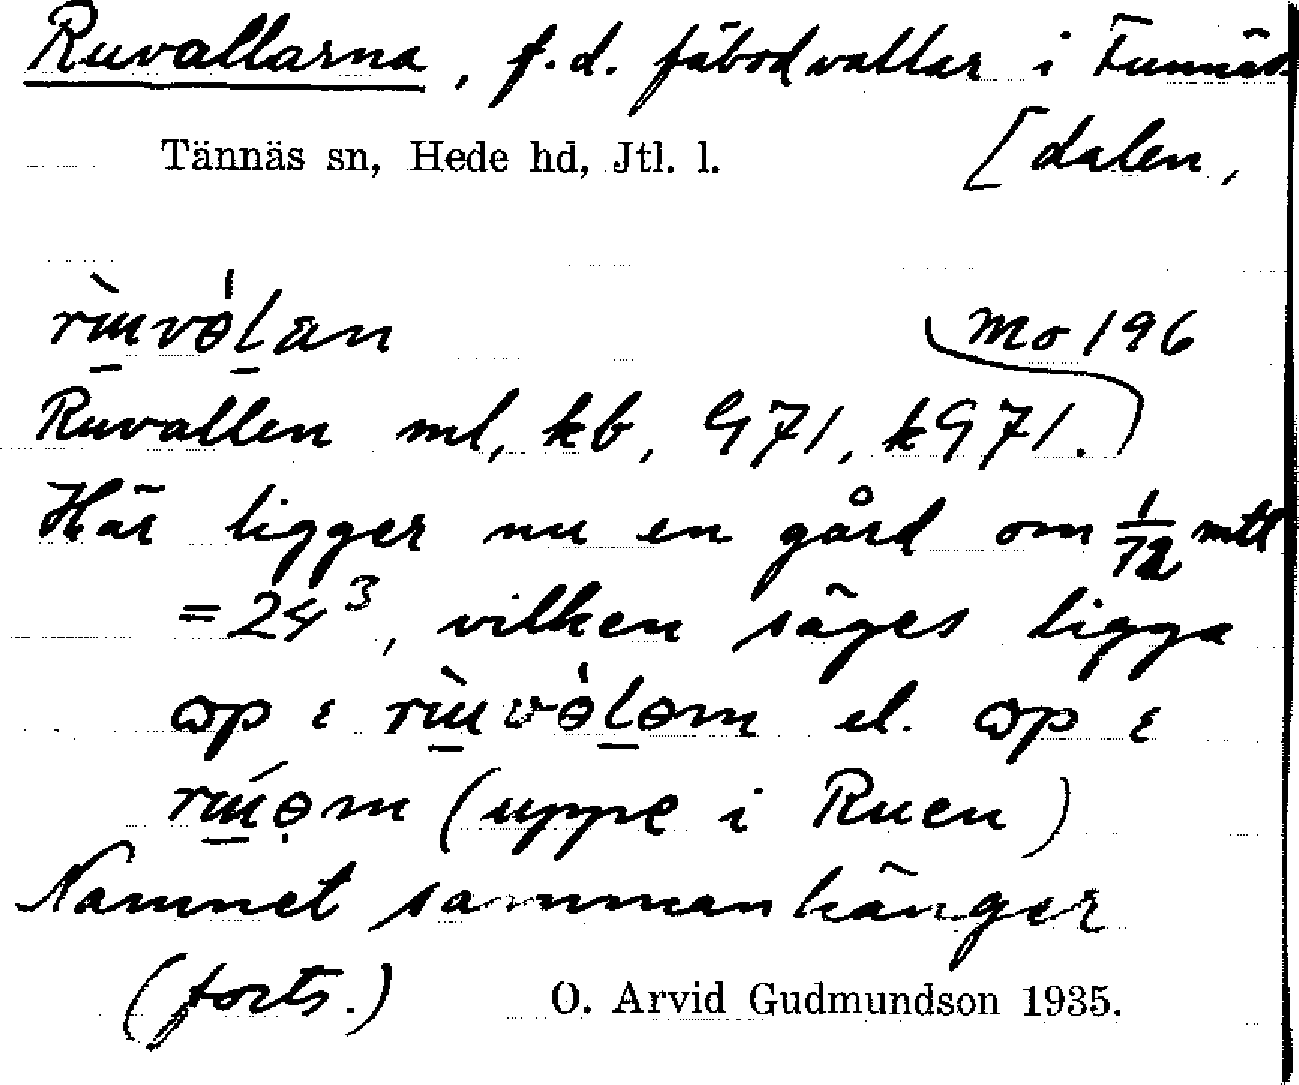 Ruvallarna, f.d. fäbodvallar i Funnäs-
[dalen,
Tännäs sn, Hede hd, Jtl. l.
Mo 196
Ruvallen ml, kb, G71, kG71.
Här ligger nu en gård om 1/72 mtl
= 24³, vilken säges ligga
el.
(uppe i Ruen)
Namnet sammanhänger
(forts.)
O. Arvid Gudmundson 1935.